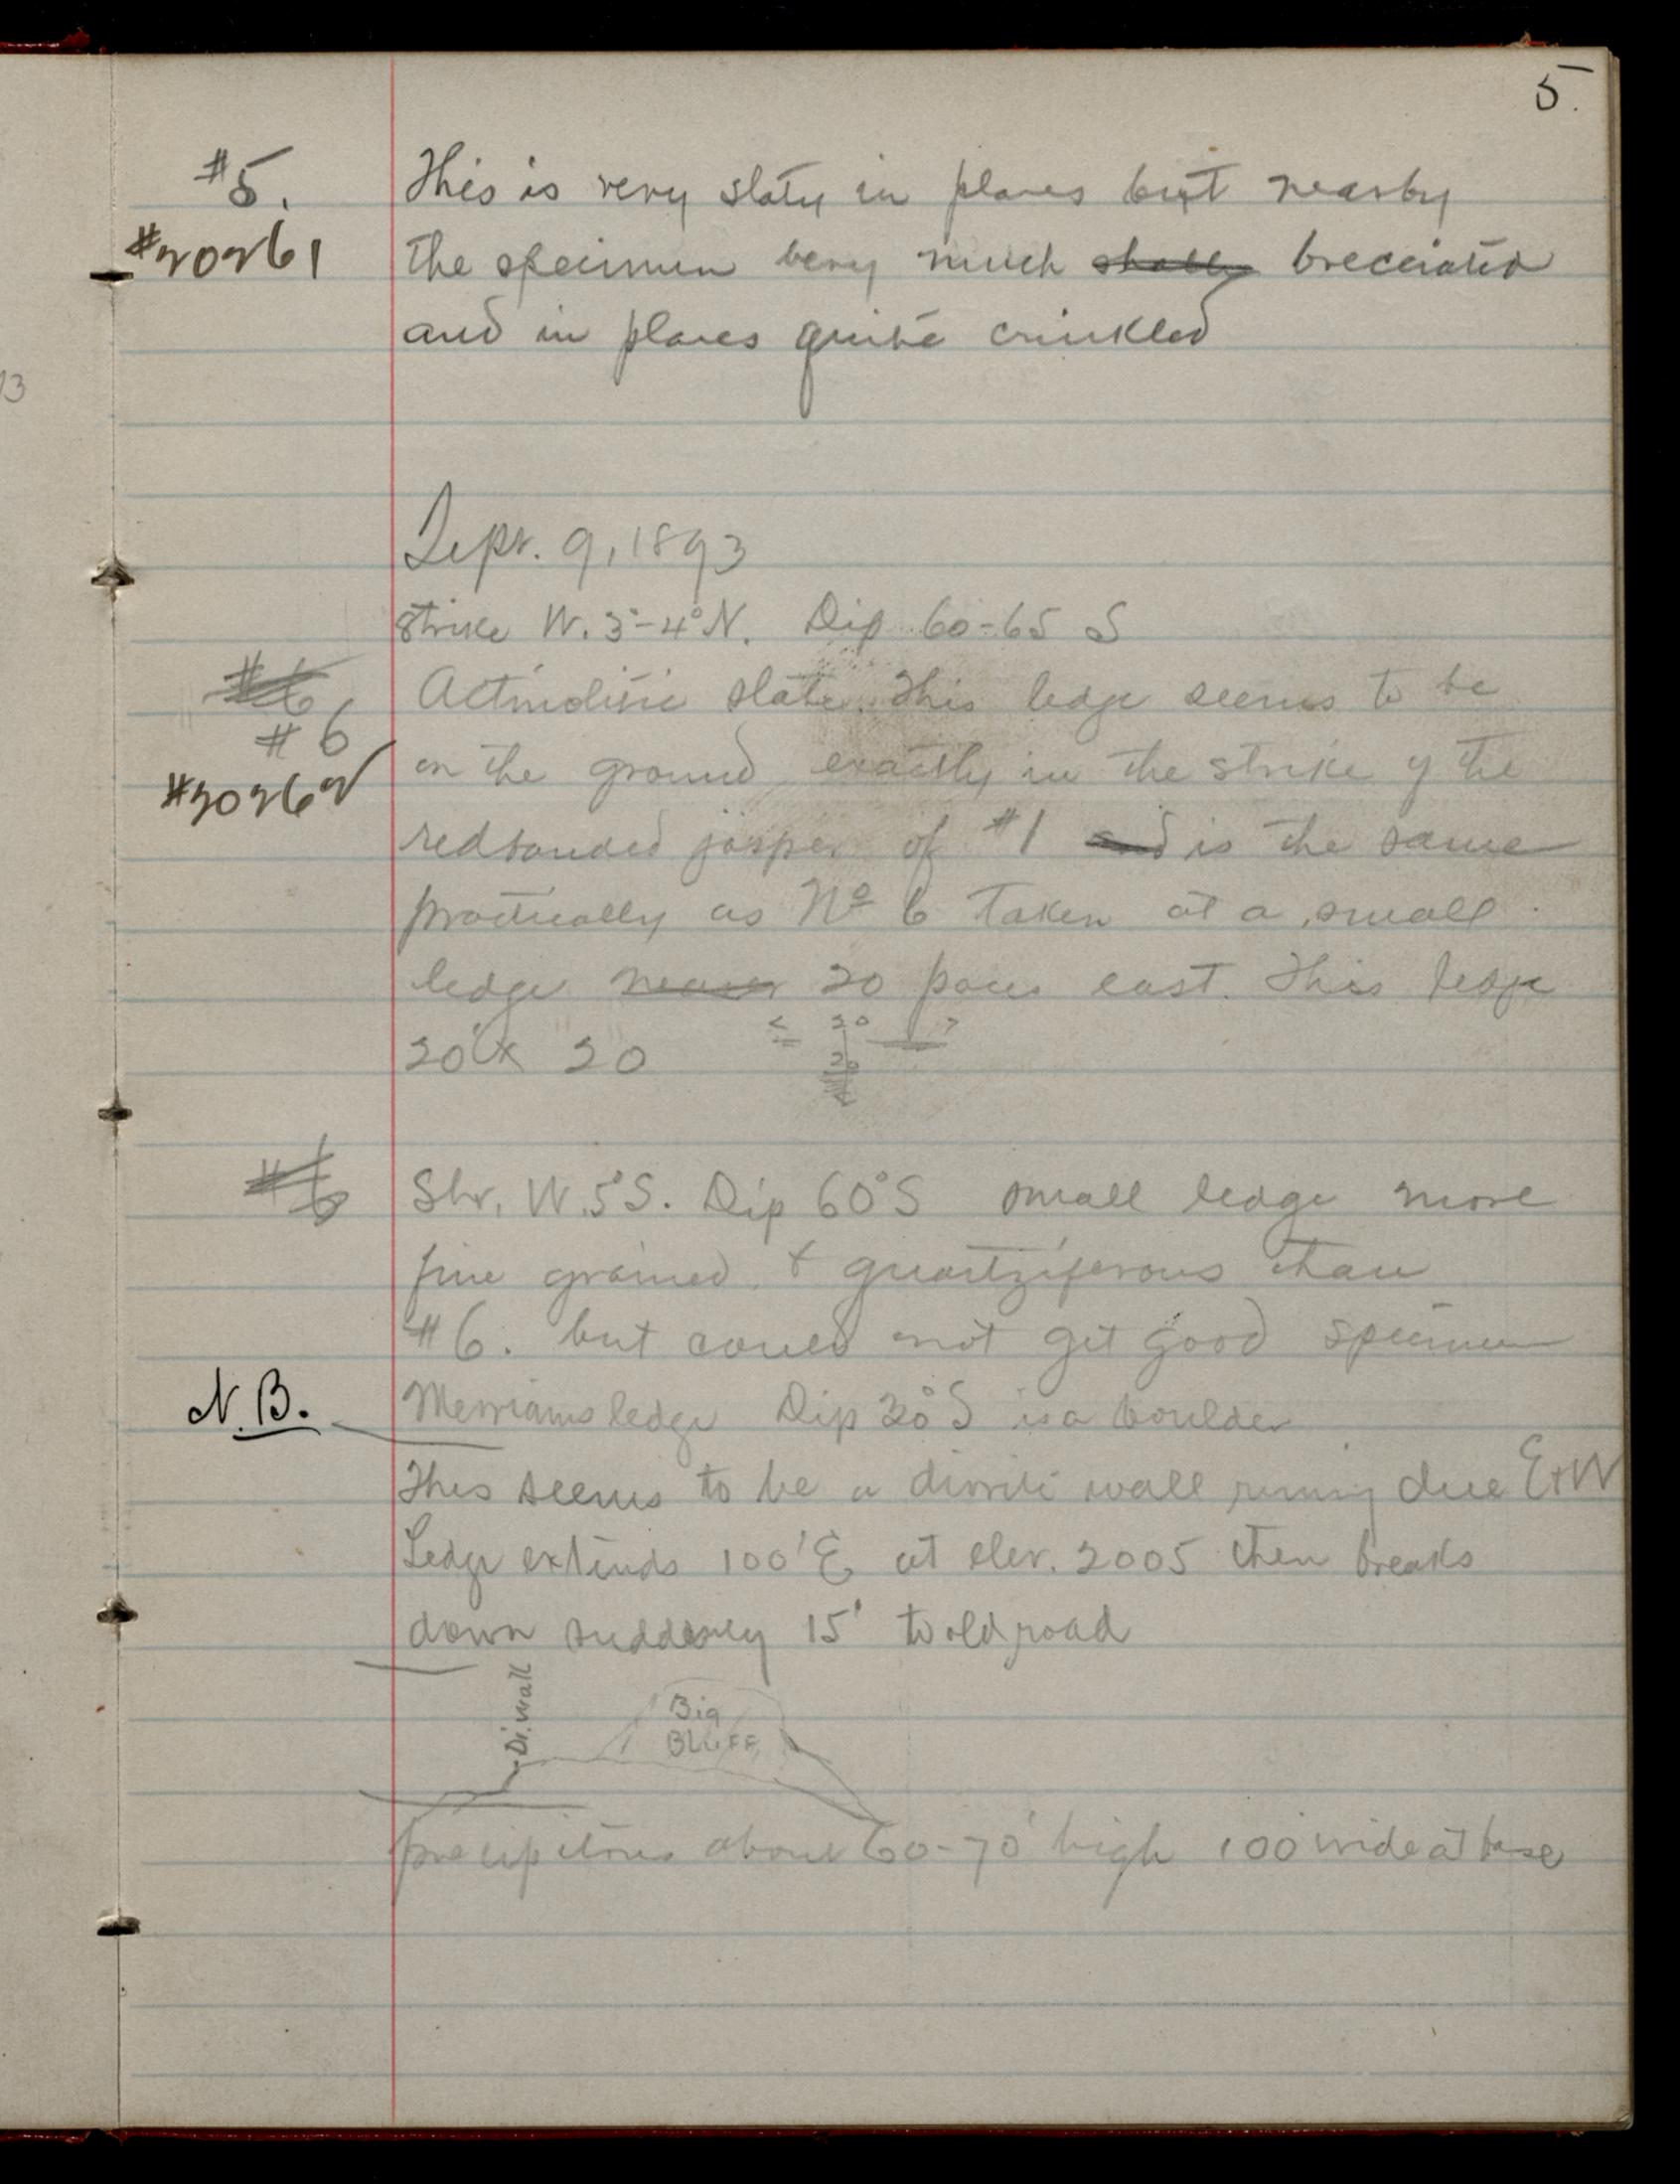 5.
#5. This is very slaty in places but nearby
#20261 the specimen very much shaley brecciated
and in places quite crinkled
Sept. 9, 1893
Strike W. 3°-4° N. Dip 60-65 S
#6 Actinolitic slate. This ledge seems to be
#6 on the ground exactly in the strike of the
#20262
redbanded jasper of #1 and is the same
practically as No 6 taken at a small
ledge near 20 paces east. This ledge
20' x 20
20
20
#6 Str. W. 5° S. Dip 60° S small ledge more
fine grained & quartziferous than
#6. but could not get good specimen
N.B. Merriams ledge Dip 30° S is a boulder
This seems to be a diorite wall runing due E & W
Ledge extends 100' E at elev. 2005 then breaks
down suddenly 15' to old road
Di. wall
Big
BLUFF
precipitous about 60-70' high 100 wide at base